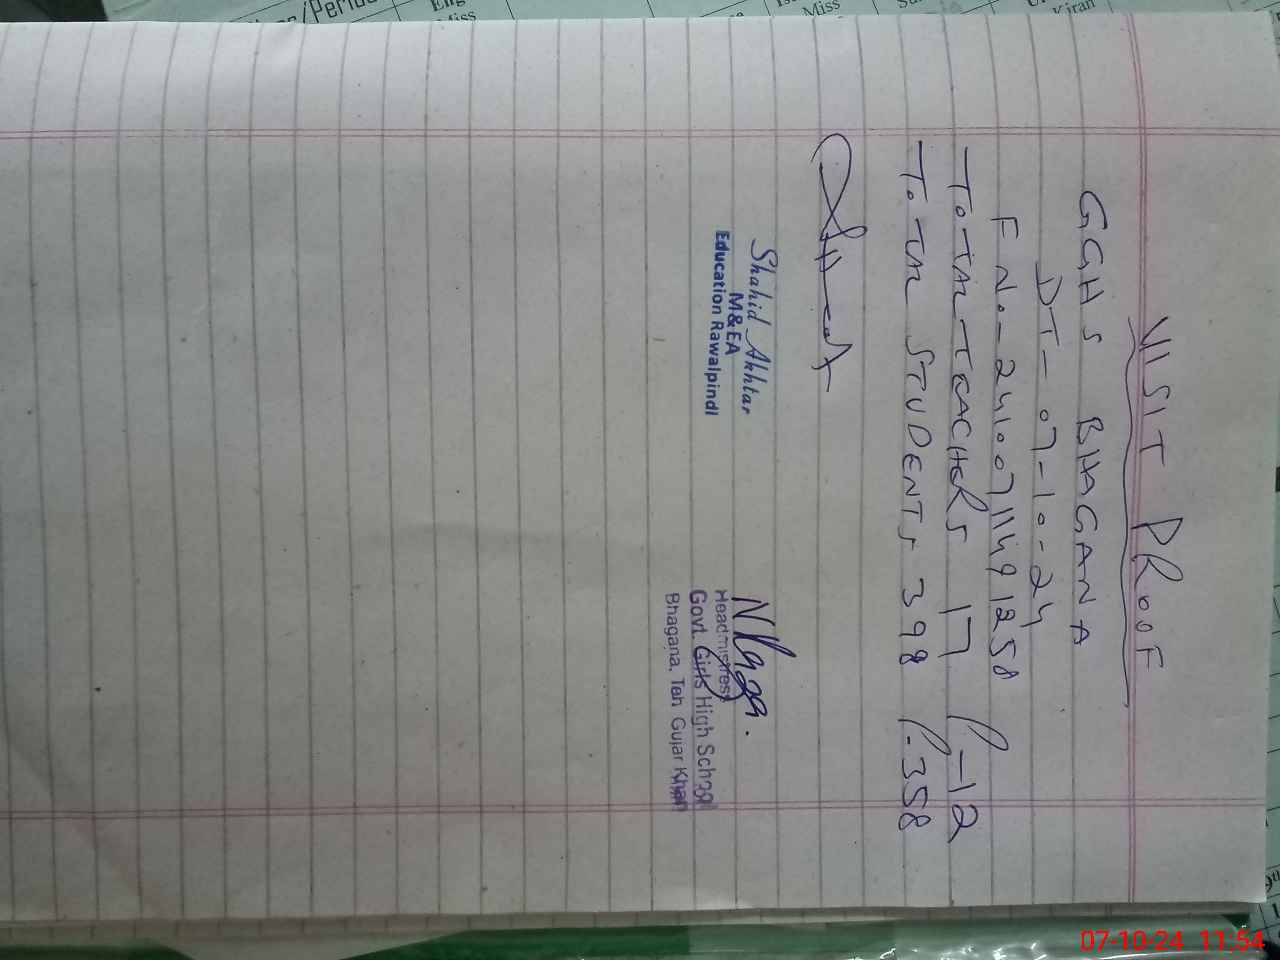 VISIT PROOF
GGHS BHAGANA
DT- 07-10-24
F No- 24100711491258
TOTAL TEACHERS 17 P-12
TOTAL STUDENTS 398 P.358
Shahid Akhtar
M&EA
Education Rawalpindi
Headmistress
Govt. Girls High School
Bhagana, Teh Gujar Khan
07-10-24 11:54
/Period
Eng
Miss
Miss
Kiran
9th